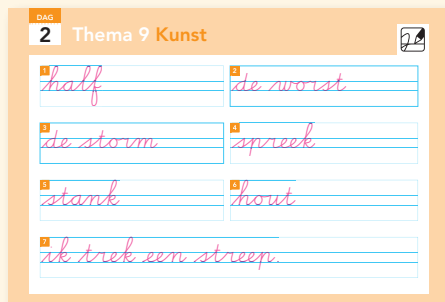 DAG
2 Thema 9 Kunst
1 half
2 de worst
3 de storm
4 spreek
5 stank
6 hout
7 ik trek een streep.